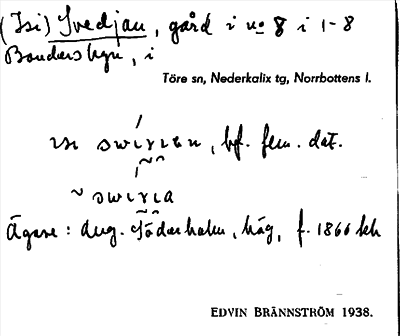 (Isi) Svedjan, gård i no 8 i 1-8
Bondersbyn, i
Töre sn, Nederkalix tg, Norrbottens l.
bf. fem. dat.
Ägare: Aug. Söderholm, häg, f. 1866
EDVIN BRÄNNSTRÖM 1938.